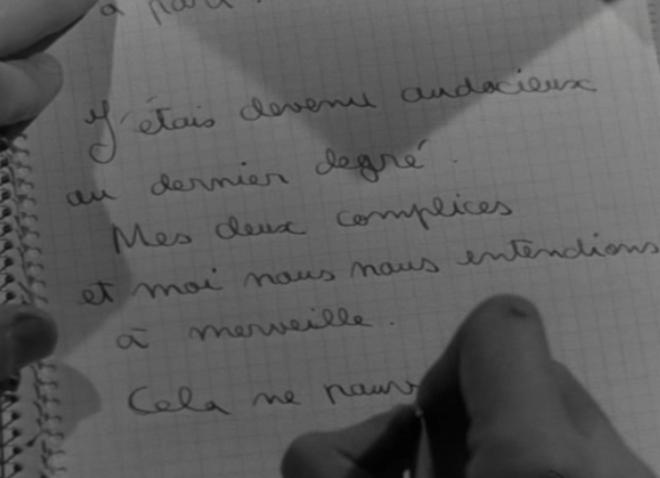 à part.
J'étais devenu audacieux
au dernier degré.
Mes deux complices
et moi nous nous entendions
à merveille.
Cela ne pouv